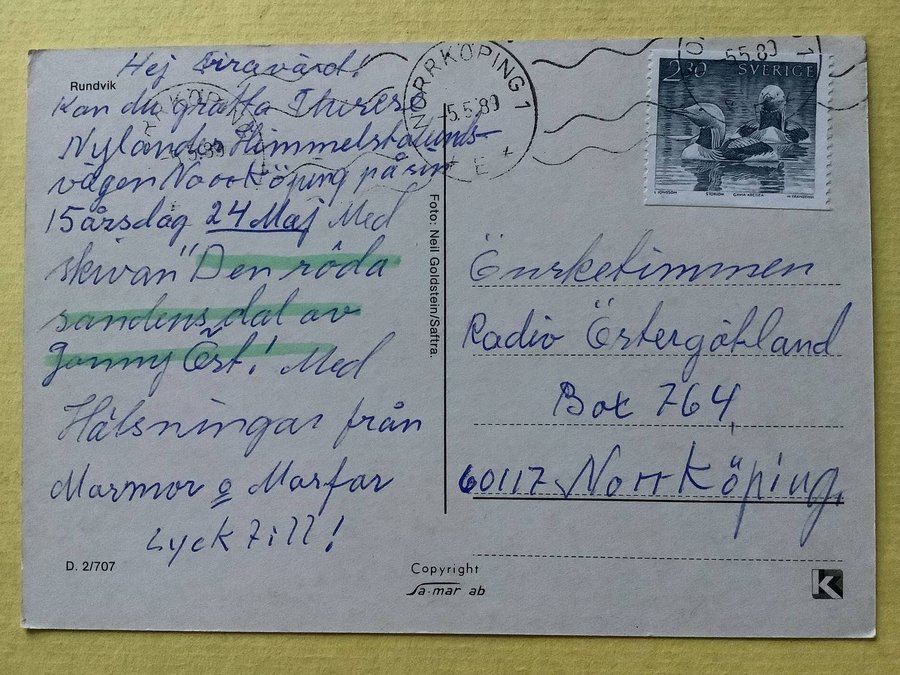 Rundvik
Hej Siravärd!
Kan du gratta Therese
Nylander Himmelstalunds-
vägen Norrköping på sin
15 årsdag 24 Maj Med
skivan "Den röda
sandens dal av
Jonny Öst! Med
Hälsningar från
Marmor o Marfar
Lyck till!
D. 2/707
Foto: Neil Goldstein/Saftra.
Copyright
Sa-mar ab
NORRKÖPING 1
5.5.89
5.5.89
2.30 SVERIGE
STORLOM GAVIA ARCTICA
Önsketimmen
Radio Östergötland
Box 764
60117 Norrköping
K